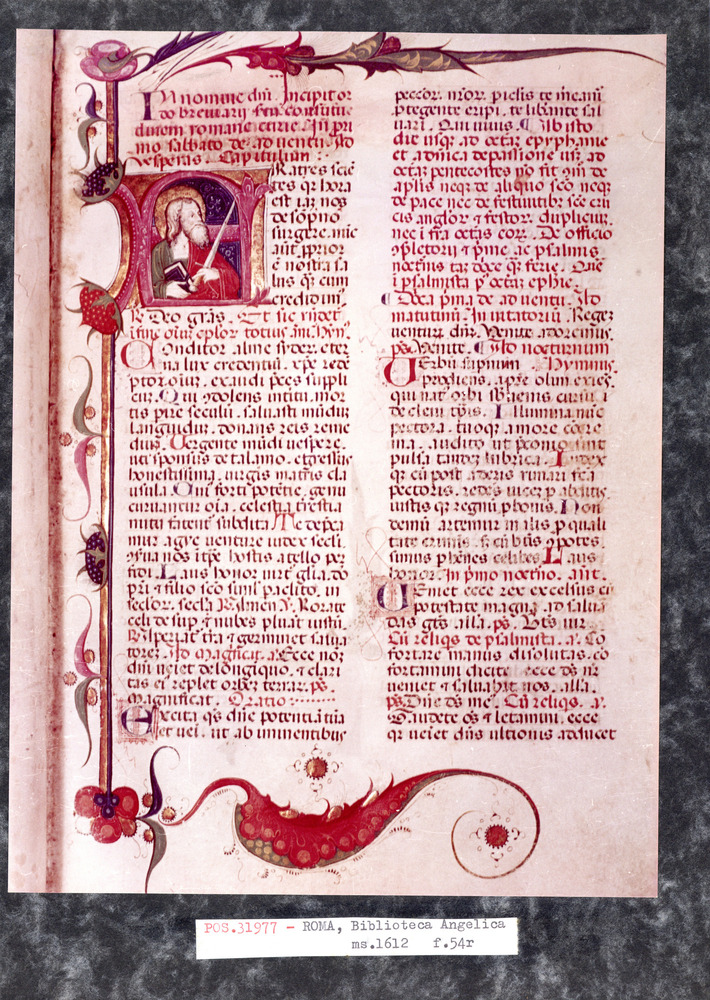 In nomine dni. Incipit or
do breuiarii
romane curie. In pri
mo sabbato de aduentu. Ad
vesperas. Capitulum.
Fratres scie
tes qr hora
est iaz nos
de sopno
surgere. nuc
aut ppior
e nostra sa
lus qz cum
credidim
R Deo gras. Et sic
Conditor alme syder. eter
na lux credentiu. xpe rede
ptor oiuz. exaudi pces suppli
cuz. Qui odolens intitu mor
tis pire seculu. saluasti mudu
languiduz. donans reis reme
diuz. Vergente mudi uespere.
uti sponsus de talamo. egressus
honestissima. uirgis matris cla
usula. Cui forti potetie. genu
curuantur oia. celestia trestia
nutu fatent subdita. Te depca
mur agye uenture iudex secli.
oserua nos itpe hostis a telo per
fidi. Laus honor uirt glia. do
pri et filio sco siml paclito. in
seclor. secla Amen. V. Rorate
celi desup et nubes pluat iustu.
Aperiat tra et germinet salua
torez. Ad magficat. a. Ecce noz
dni ueniet de longiquo. et clari
tas ei replet orbez terraz. ps.
Magnificat. Oratio
Excita qs dne potentia tua
et uei. ut ab iminentibus
peccor. nror. piclis te mem
ptegente eripi. te libante sal
uari. Qui uiuis. Ab isto
die usqz ad octaz epyphanie
et a dnica de passione usqz ad
octaz pentecostes no fit oni de
aplis neqz de aliquo sco neqz
de pace nec de festiuitibz sce cru
cis anglor et festor. dupliciuz.
nec i fra octas eoz. De officio
opletorij et pme ac psalmis
nocturnis
i psalmista p octaz ephie.
Doca pma de aduentu. Ad
matutinu. Inuitatoriu. Regez
uenturu dnz. Venite adoremus.
ps. Venite. Ad nocturnum
Verbu supnum Hymnus.
prodiens. apre olim exies.
qui nat orbi subuenis cursu i
decliui tpis. Illumina nuc
pectora. tuoqz amore coere
ma. audito ut pconio sint
pulsa tandez lubrica. Iudex
qz cu post aderis rimari fca
pectoris. redes uicez p abditis.
iustis qz regnu p bonis. Non
demu artemur malis p quali
tate criminis. sz cu btis opotes
simus phenes celibes. Laus
honor. In pmo nocturno. ant.
Veniet ecce rex excelsus cu
potestate magna ad salua
das gtes alla. ps. Bts uir.
Cu reliqs de psalmista. a. Co
fortate manus disolutas. co
fortamini dicite ecce ds nr
ueniet et saluabit nos. alla.
ps. Dne ds me. Cu reliqs. a.
Gaudete oes et letamini. ecce
qr ueiet dns ultionis adducet
POS.31977 - ROMA, Biblioteca Angelica
ms.1612 f.54r